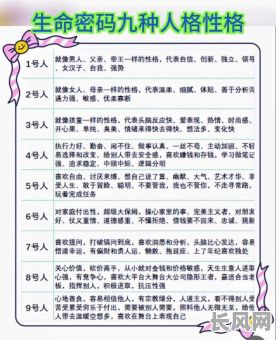 生命密码九种人格性格
1号人
就像男人、父亲、帝王一样的性格，代表自信、创新、独立、领导、女汉子、自我、强势
2号人
就像女人、母亲一样的性格，代表温柔、细腻、体贴、善于分析沟通力强、敏感、优柔寡断
3号人
就像小孩一样的性格，代表头脑反应快、爱表现、热情、时尚感、开心果、单纯、臭美、情绪来得快去得快、想法多、变化快
4号人
执行力好、勤奋、闲不住、做事认真、一丝不苟、主动加班、不轻易选择和改变、给别人带去安全感，喜欢赚钱和存钱，学习做笔记强、追求稳定、中规中矩、逻辑分明
5号人
喜欢自由、讨厌束缚、想自己说了算、幽默、大气、艺术才华、享受人生、敢于冒险、聪明、不要管我，我也不管你，不走寻常路，玩着完成任务
6号人
对家庭付出性，超级大保姆，操心家里的事、完美主义者，对朋友好、仗义重情、道德感重、不懂拒绝、借钱要不回来、忠诚、挑剔
7号人
喜欢提问，打破锅问到底，喜欢洞悉和分析、头脑比心发达，容易道听幸运，有偏财和贵人运、懒散、拖延症、上了年纪喜欢独处
8号人
关心价值，砍价高手，从小就对金钱和价格敏感，天生生意人进取心强，有竞争心，喜欢大平台大舞台大公司隐形王者，最适合当老板，指挥别人，积极进取，抗压性强
9号人
心地善良、容易相信他人、有宗教缘分、人道主义，看不得别人受苦受累受劳乐于付出，需要被别人需要、照料他人无微无至、给他人带去温暖空想多，喜欢在舞台上表现自己
长风网